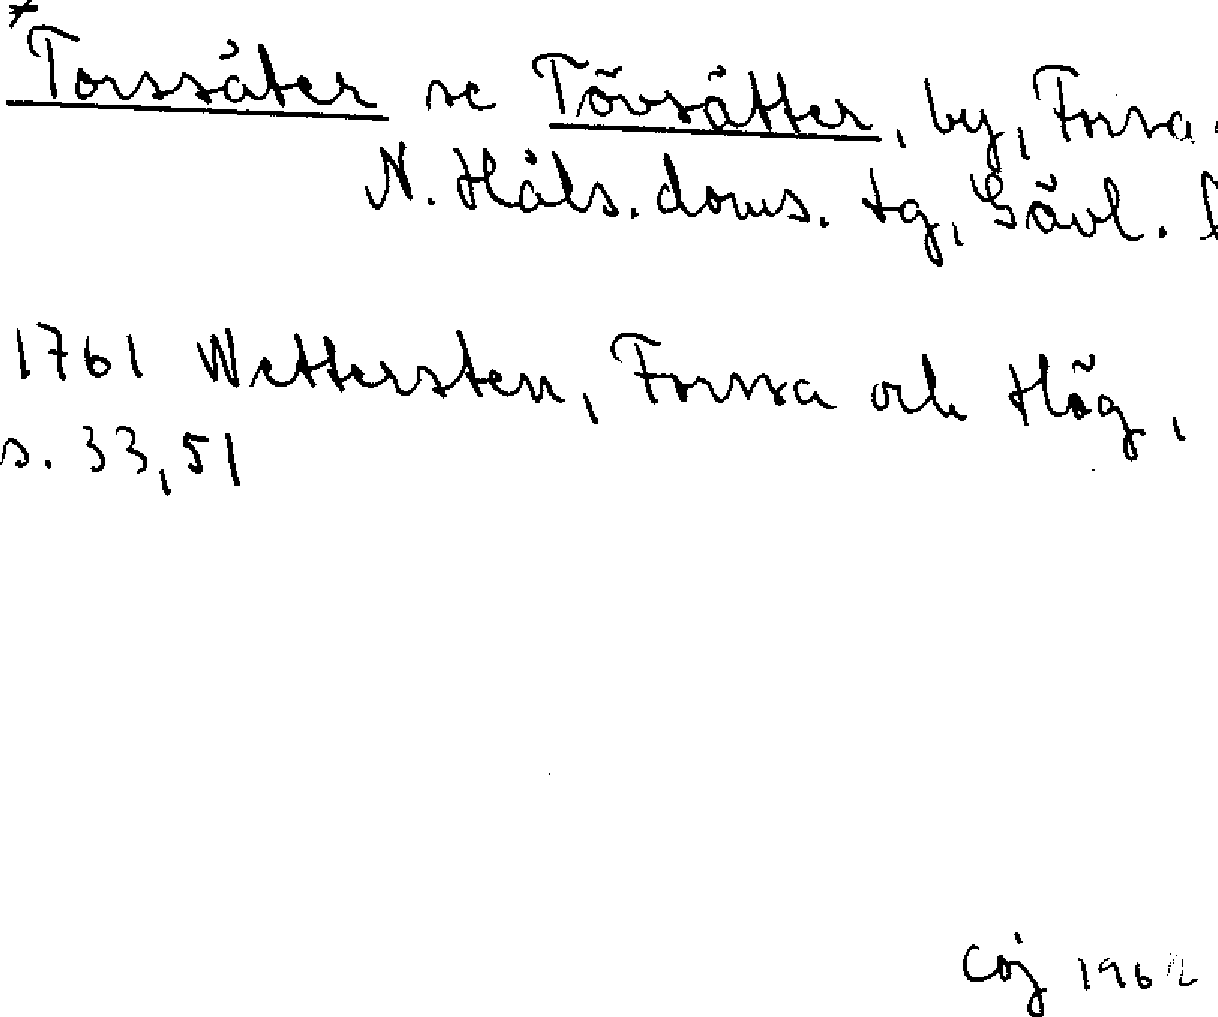 *Torssäter se Tövsätter, by, Forsa
N. Häls. doms. tg, Gävl. l
1761 Wettersten, Forssa och Hög,
s. 33, 51
1962